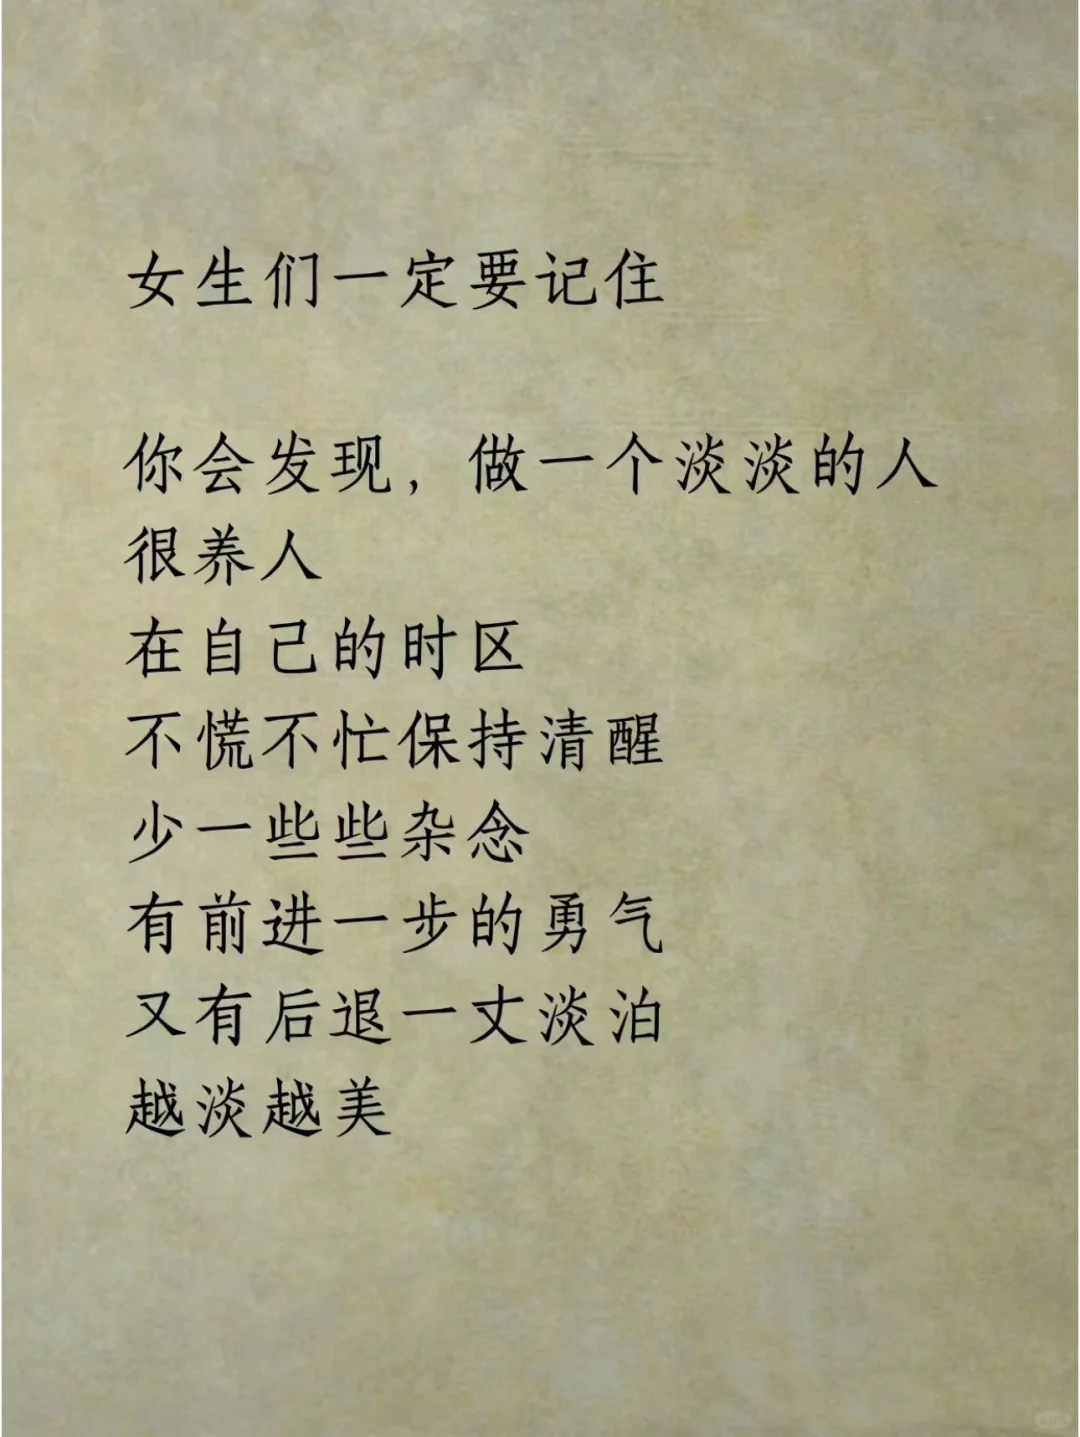 女生们一定要记住
你会发现，做一个淡淡的人
很养人
在自己的时区
不慌不忙保持清醒
少一些些杂念
有前进一步的勇气
又有后退一丈淡泊
越淡越美